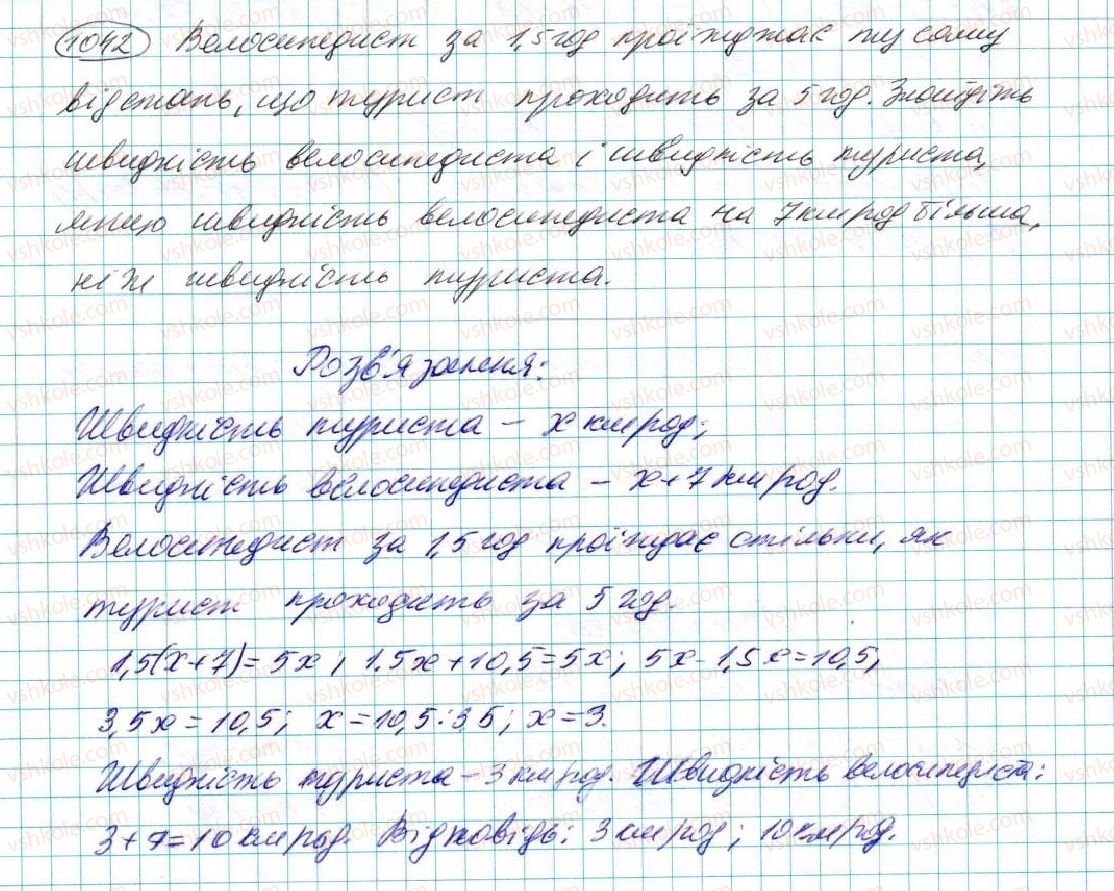 1042 Велосипедист за 1,5 год проїжджає ту саму
відстань, що турист проходить за 5 год. Знайдіть
швидкість велосипедиста і швидкість туриста,
якщо швидкість велосипедиста на 7 км/год більша,
ніж швидкість туриста.
Розв'язання:
Швидкість туриста – x км/год;
Швидкість велосипедиста – x+7 км/год.
Велосипедист за 1,5 год проїждає стільки, як
турист проходить за 5 год.
1,5(x+7)=5x; 1.5x+10,5=5x; 5x-1,5x=10,5;
3,5x=10,5; x=10,5:3,5; x=3.
Швидкість туриста – 3 км/год. Швидкість велосипедиста:
3+7=10 км/год. Відповідь: 3 км/год; 10 км/год.